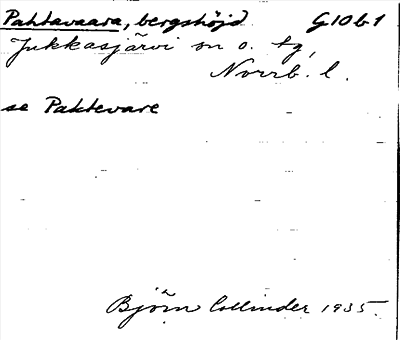 Pahtavaara, bergshöjd G10b1
Jukkasjärvi sn o. tg,
Norrb. l.
se Paktevare
Björn Collinder 1935.